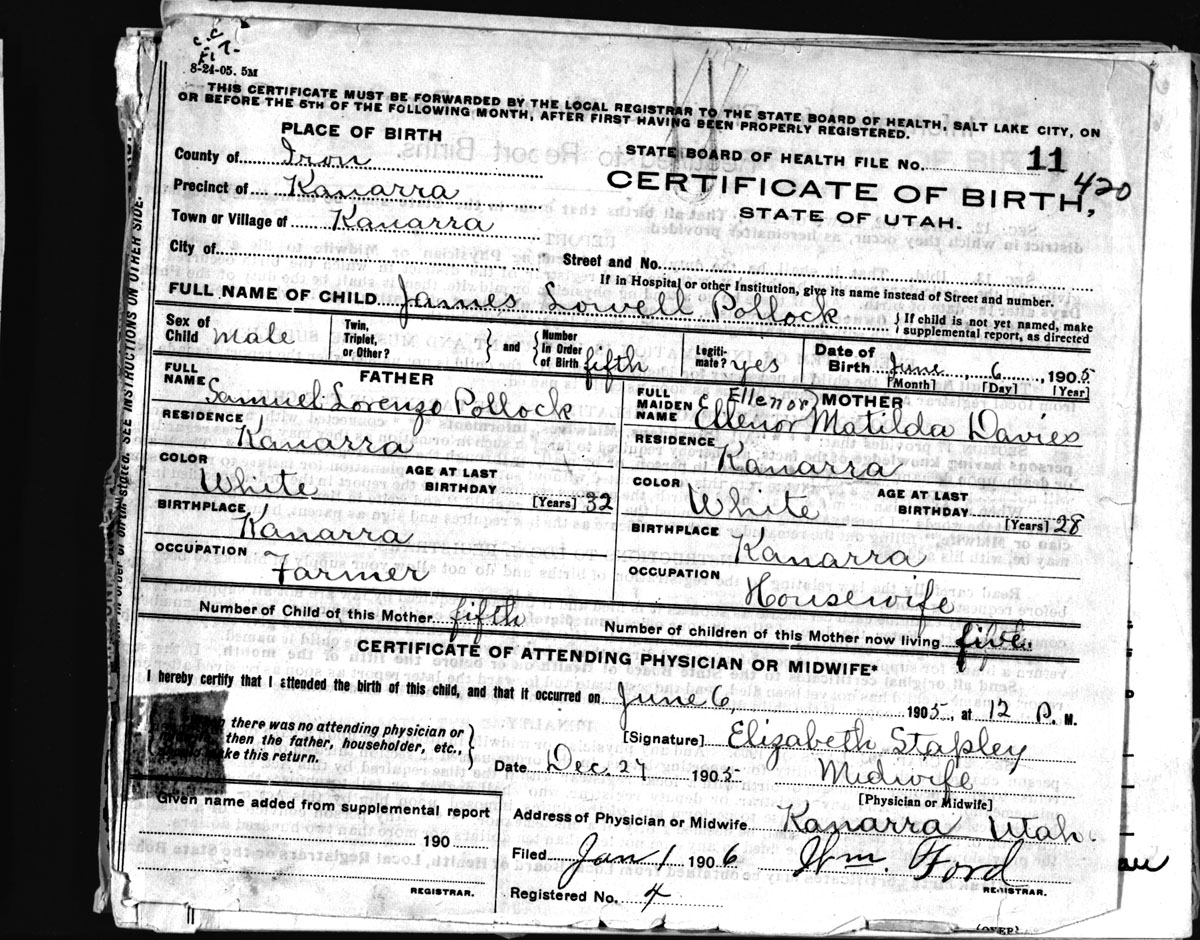 C.C.
8-24-05. 5M
THIS CERTIFICATE MUST BE FORWARDED BY THE LOCAL REGISTRAR TO THE STATE BOARD OF HEALTH, SALT LAKE CITY, ON
OR BEFORE THE 5TH OF THE FOLLOWING MONTH, AFTER FIRST HAVING BEEN PROPERLY REGISTERED.
PLACE OF BIRTH
STATE BOARD OF HEALTH FILE No. 11
420
County of Iron
CERTIFICATE OF BIRTH,
Precinct of Kanarra
STATE OF UTAH.
Town or Village of Kanarra
City of
Street and No.
If in Hospital or other Institution, give its name instead of Street and number.
FULL NAME OF CHILD James Lowell Pollock
If child is not yet named, make
supplemental report, as directed
Sex of Child Male
Twin, Triplet, or Other?
and
Number In Order of Birth fifth
Legiti- mate? yes
Date of Birth June 6, 1905
[Month] [Day] [Year]
FATHER
FULL NAME Samuel Lorenzo Pollock
RESIDENCE Kanarra
COLOR White
AGE AT LAST BIRTHDAY 32
[Years]
BIRTHPLACE Kanarra
OCCUPATION Farmer
MOTHER
(Ellenor)
FULL MAIDEN NAME Ellenor Matilda Davies
RESIDENCE Kanarra
COLOR White
AGE AT LAST BIRTHDAY 28
[Years]
BIRTHPLACE Kanarra
OCCUPATION Housewife
Number of Child of this Mother fifth
Number of children of this Mother now living five.
CERTIFICATE OF ATTENDING PHYSICIAN OR MIDWIFE*
I hereby certify that I attended the birth of this child, and that it occurred on June 6
1905, at 12 P. M.
there was no attending physician or
then the father, householder, etc.,
make this return.
[Signature] Elizabeth Stapley
Date Dec. 27 1905
Midwife
[Physician or Midwife]
Given name added from supplemental report
190
REGISTRAR.
Address of Physician or Midwife Kanarra Utah
Filed Jan 1 1906
Wm. Ford
REGISTRAR.
Registered No. 4
(OVER)
SEE INSTRUCTIONS ON OTHER SIDE.